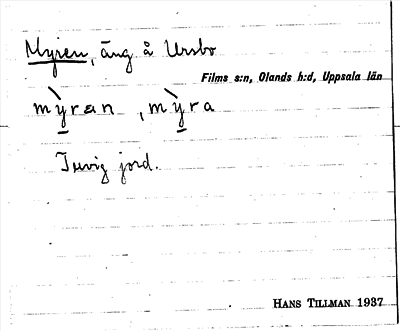 Myren, äng å Ursbo
Films s:n, Olands h:d, Uppsala län
mỳ̱ran , mỳ̱ra
Tuvig jord.
HANS TILLMAN 1937